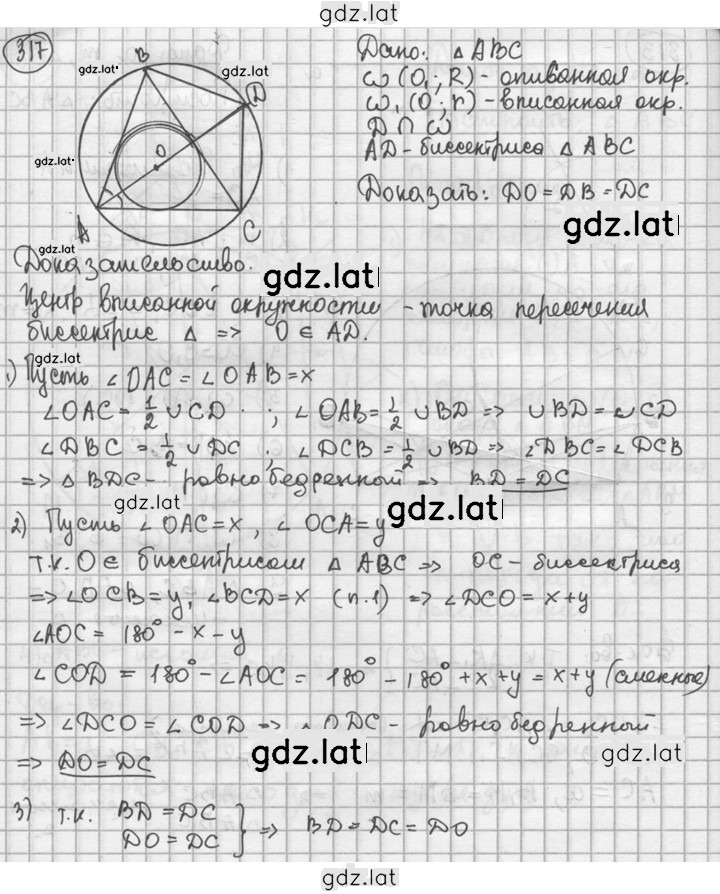 gdz.lat
317
gdz.lat
gdz.lat
gdz.lat
B
D
O
A
C
Дано: △ ABC
ω (O₁; R) - описанная окр.
ω₁ (O; r) - вписанная окр.
D ∩ ω
AD - биссектриса △ ABC
Доказать: DO = DB = DC
gdz.lat
gdz.lat
Доказательство.
gdz.lat
Центр вписанной окружности - точка пересечения
биссектрис △ => O ∈ AD.
gdz.lat
1) Пусть ∠OAC = ∠OAB = x
∠OAC = 1/2 ∪CD ; ∠OAB = 1/2 ∪BD => ∪BD = ∪CD
∠DBC = 1/2 ∪DC ; ∠DCB = 1/2 ∪BD => ∠DBC = ∠DCB
=> △ BDC - равнобедренной => BD = DC
gdz.lat
gdz.lat
2) Пусть ∠OAC = x, ∠OCA = y
т.к. O ∈ биссектрисам △ ABC => OC - биссектриса
=> ∠OCB = y, ∠BCD = x (п.1) => ∠DCO = x+y
∠AOC = 180° - x - y
∠COD = 180° - ∠AOC = 180° - 180° + x + y = x + y (смежные)
=> ∠DCO = ∠COD => △ ODC - равнобедренной
gdz.lat
gdz.lat
=> DO = DC
3) т.к. BD = DC
DO = DC } => BD = DC = DO
gdz.lat